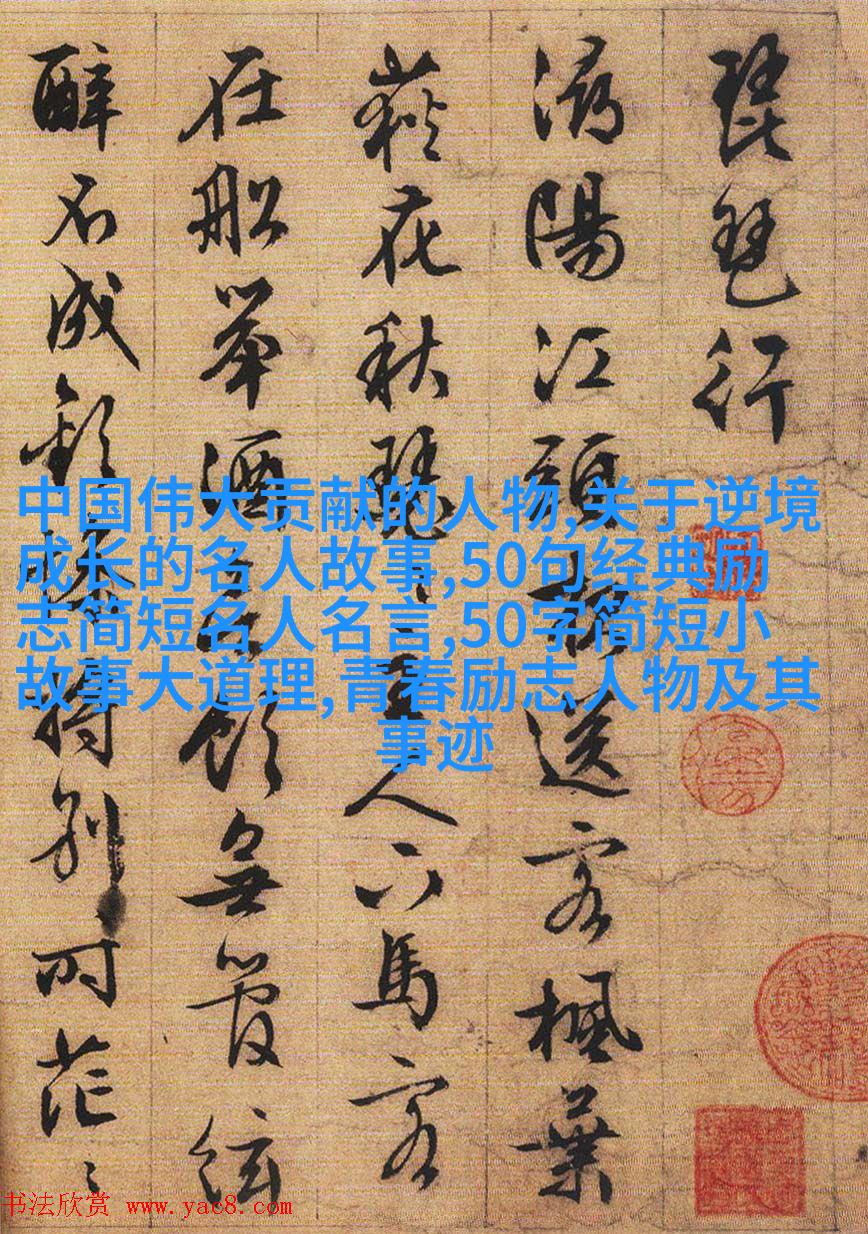 琵琶行
潯陽江頭夜送客楓葉
荻花秋瑟〻主人下馬客
在船舉酒欲飲無管絃
醉不成歡慘將別時茫〻
中国伟大贡献的人物,关于逆境
成长的名人故事,50句经典励
志简短名人名言,50字简短小
故事大道理,青春励志人物及其
事迹
书法欣赏 www.yac8.com